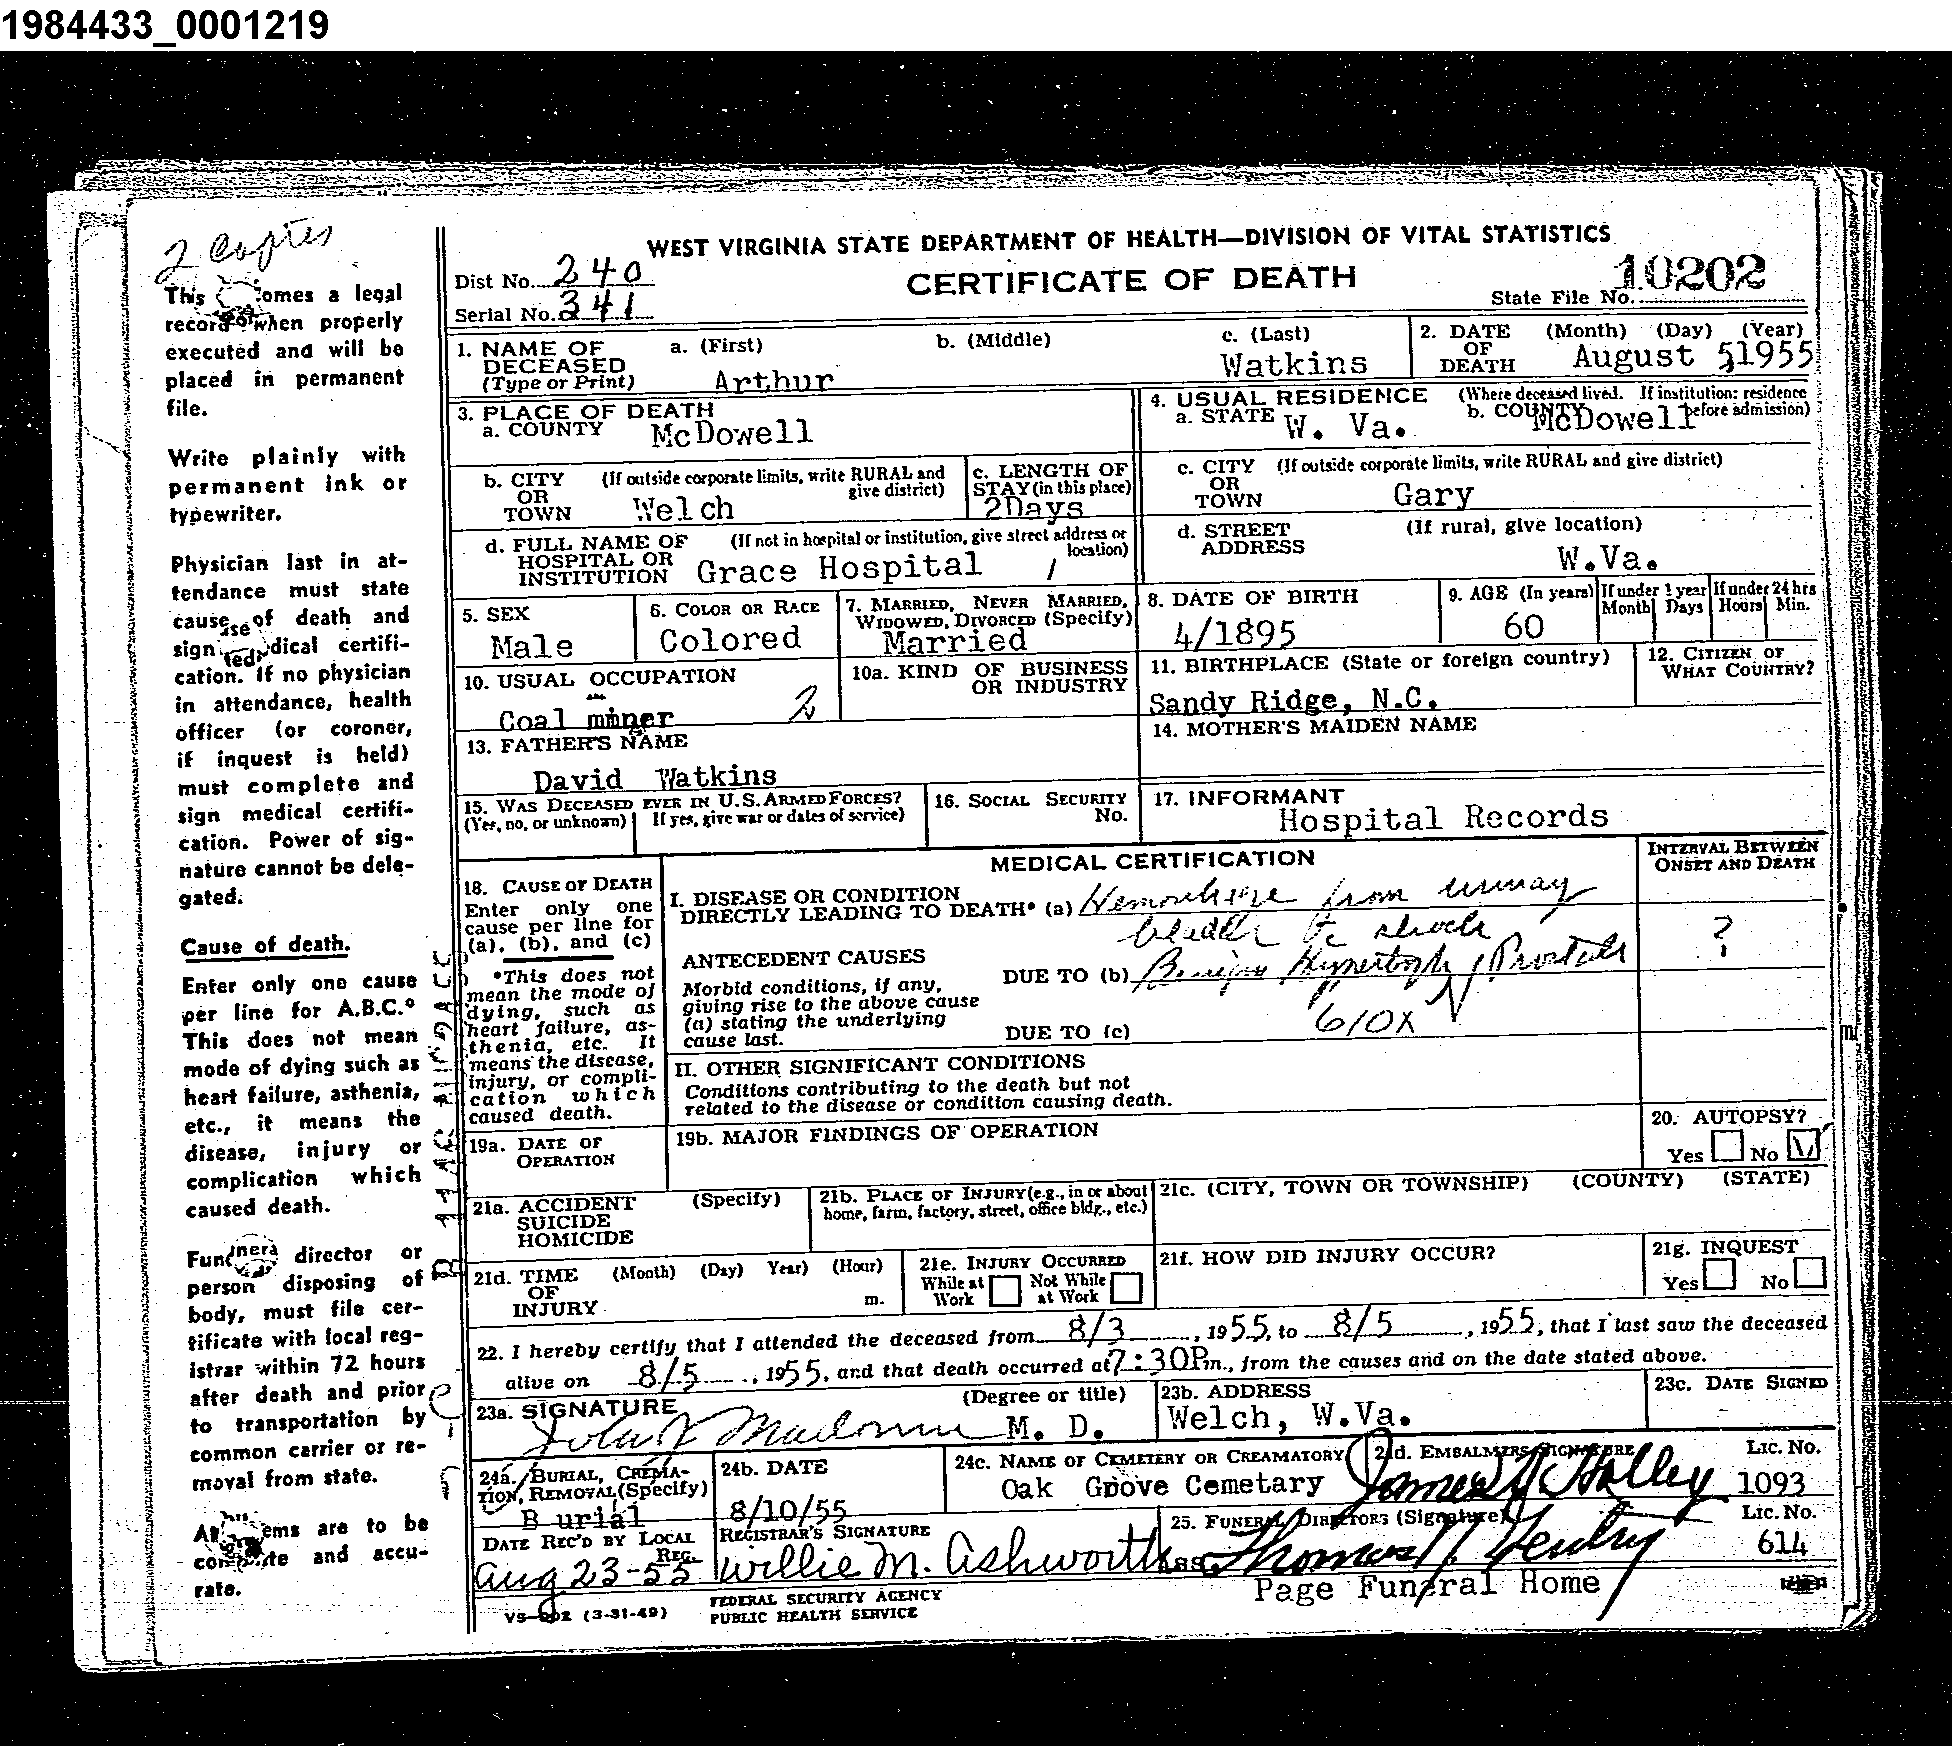 1984433_0001219
2 Copies
WEST VIRGINIA STATE DEPARTMENT OF HEALTH—DIVISION OF VITAL STATISTICS
CERTIFICATE OF DEATH
Dist No. 240
Serial No. 341
State File No. 10202
1. NAME OF DECEASED (Type or Print) a. (First) Arthur b. (Middle) c. (Last) Watkins
2. DATE OF DEATH (Month) (Day) (Year) August 5, 1955
3. PLACE OF DEATH
a. COUNTY McDowell
b. CITY OR TOWN (If outside corporate limits, write RURAL and give district) Welch
c. LENGTH OF STAY (in this place) 2Days
d. FULL NAME OF HOSPITAL OR INSTITUTION (If not in hospital or institution, give street address or location) Grace Hospital /
4. USUAL RESIDENCE (Where deceased lived. If institution: residence before admission)
a. STATE W. Va. b. COUNTY McDowell
c. CITY OR TOWN (If outside corporate limits, write RURAL and give district) Gary
d. STREET ADDRESS (If rural, give location) W.Va.
5. SEX Male
6. COLOR OR RACE Colored
7. MARRIED, NEVER MARRIED, WIDOWED, DIVORCED (Specify) Married
8. DATE OF BIRTH 4/1895
9. AGE (In years) 60 If under 1 year Month Days If under 24 hrs Hours Min.
10. USUAL OCCUPATION Coal miner 2
10a. KIND OF BUSINESS OR INDUSTRY
11. BIRTHPLACE (State or foreign country) Sandy Ridge, N.C.
12. CITIZEN OF WHAT COUNTRY?
13. FATHER'S NAME David Watkins
14. MOTHER'S MAIDEN NAME
15. WAS DECEASED EVER IN U.S. ARMED FORCES? (Yes, no, or unknown) If yes, give war or dates of service)
16. SOCIAL SECURITY No.
17. INFORMANT Hospital Records
MEDICAL CERTIFICATION
INTERVAL BETWEEN ONSET AND DEATH
18. CAUSE OF DEATH
Enter only one cause per line for (a), (b), and (c)
*This does not mean the mode of dying, such as heart failure, asthenia, etc. It means the disease, injury, or complication which caused death.
I. DISEASE OR CONDITION DIRECTLY LEADING TO DEATH* (a) Hemorrhage from urinary
bladder shock ?
ANTECEDENT CAUSES
Morbid conditions, if any, giving rise to the above cause (a) stating the underlying cause last.
DUE TO (b) Benign Hypertrophy Prostate
DUE TO (c) 610X
II. OTHER SIGNIFICANT CONDITIONS
Conditions contributing to the death but not related to the disease or condition causing death.
19a. DATE OF OPERATION
19b. MAJOR FINDINGS OF OPERATION
20. AUTOPSY? Yes No V
21a. ACCIDENT SUICIDE HOMICIDE (Specify)
21b. PLACE OF INJURY (e.g., in or about home, farm, factory, street, office bldg., etc.)
21c. (CITY, TOWN OR TOWNSHIP) (COUNTY) (STATE)
21d. TIME OF INJURY (Month) (Day) Year) (Hour) m.
21e. INJURY OCCURRED While at Work Not While at Work
21f. HOW DID INJURY OCCUR?
21g. INQUEST Yes No
22. I hereby certify that I attended the deceased from 8/3, 1955, to 8/5, 1955, that I last saw the deceased
alive on 8/5, 1955, and that death occurred at 7:30P m., from the causes and on the date stated above.
23a. SIGNATURE (Degree or title) M. D.
23b. ADDRESS Welch, W.Va.
23c. DATE SIGNED
24a. BURIAL, CREMATION, REMOVAL (Specify) Burial
24b. DATE 8/10/55
24c. NAME OF CEMETERY OR CREAMATORY Oak Grove Cemetary
24d. EMBALMERS SIGNATURE James Holley Lic. No. 1093
DATE REC'D BY LOCAL REG. Aug 23-55
REGISTRAR'S SIGNATURE Willie M. Ashworth
25. FUNERAL DIRECTORS (Signature) Thomas Lic. No. 614
Page Funeral Home
VS-202 (3-31-49)
FEDERAL SECURITY AGENCY
PUBLIC HEALTH SERVICE
This comes a legal
record when properly
executed and will be
placed in permanent
file.
Write plainly with
permanent ink or
typewriter.
Physician last in at-
tendance must state
cause of death and
sign medical certifi-
cation. If no physician
in attendance, health
officer (or coroner,
if inquest is held)
must complete and
sign medical certifi-
cation. Power of sig-
nature cannot be dele-
gated.
Cause of death.
Enter only one cause
per line for A.B.C.*
This does not mean
mode of dying such as
heart failure, asthenia,
etc., it means the
disease, injury or
complication which
caused death.
Funeral director or
person disposing of
body, must file cer-
tificate with local reg-
istrar within 72 hours
after death and prior
to transportation by
common carrier or re-
moval from state.
All items are to be
complete and accu-
rate.